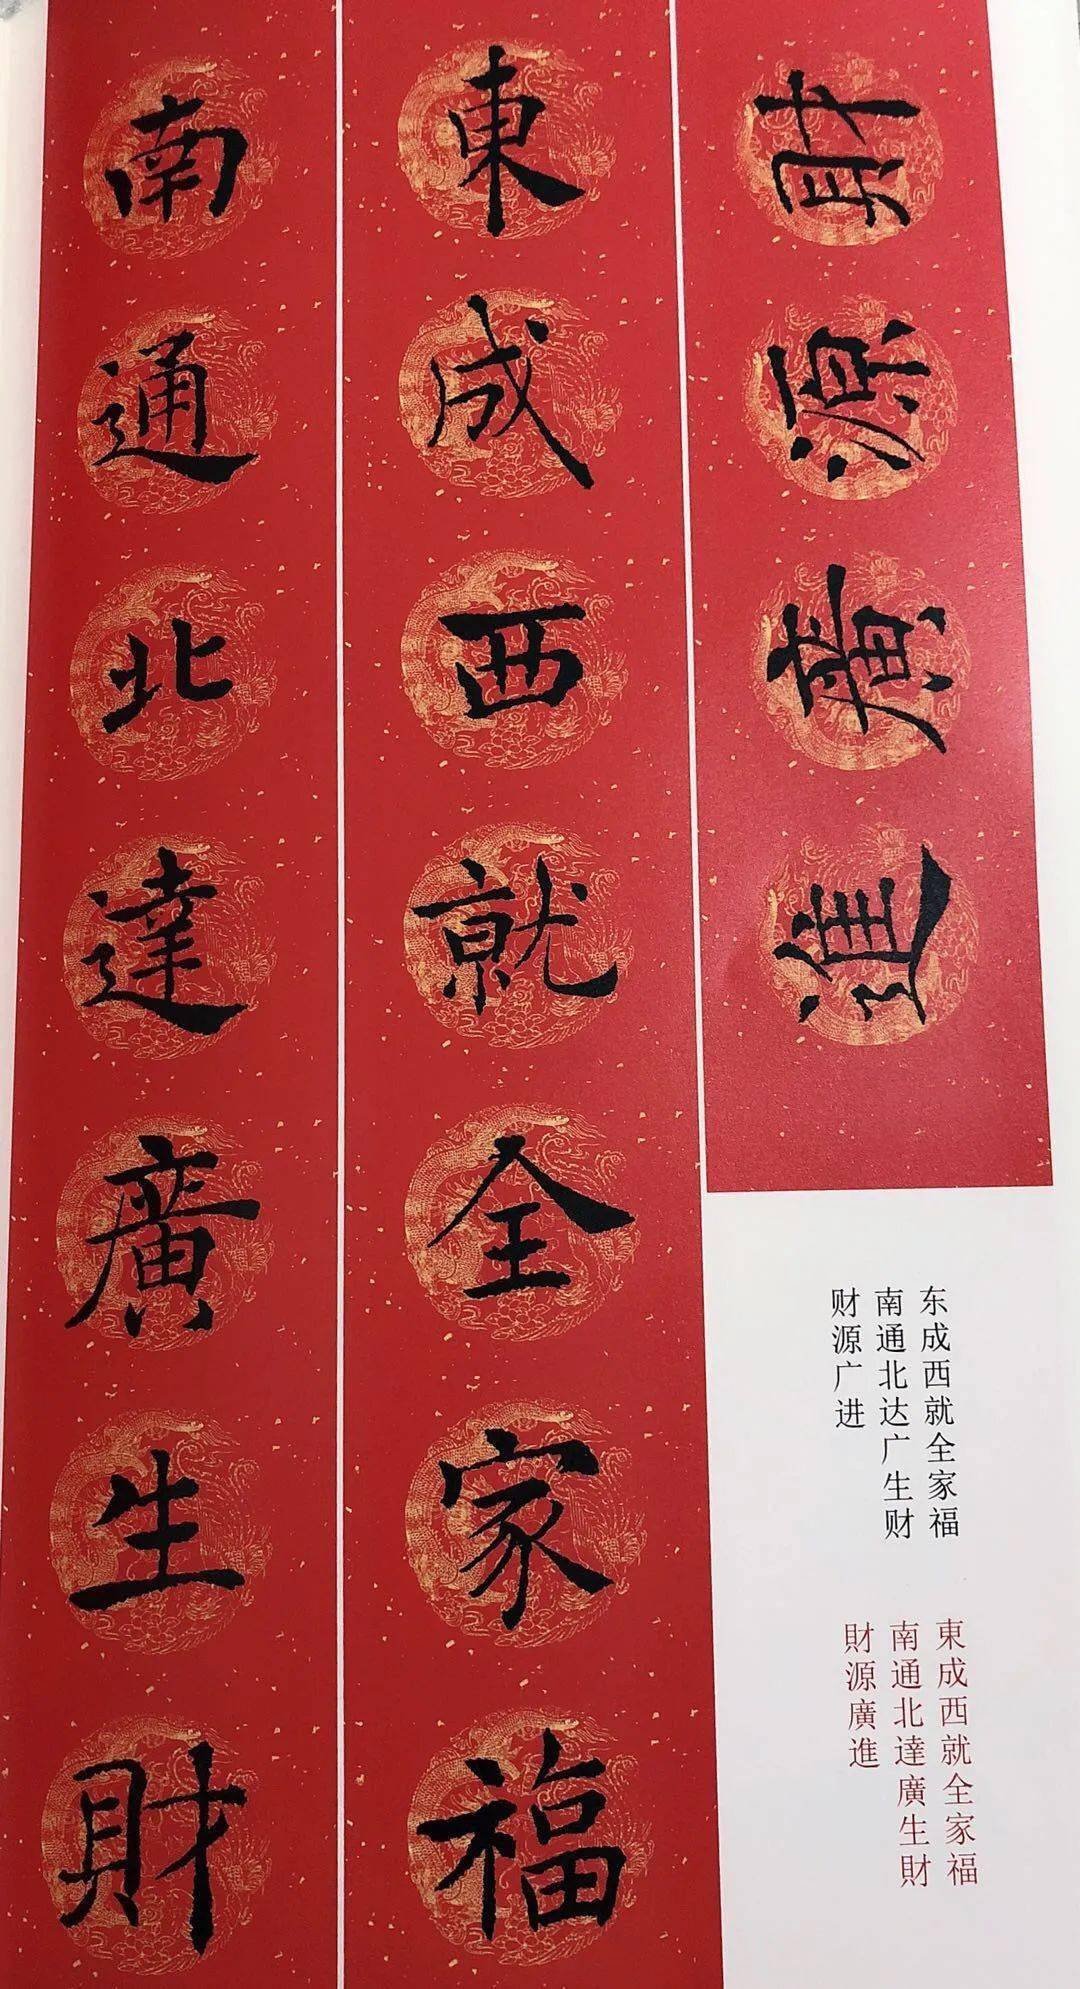 財源廣進
東成西就全家福
南通北達廣生財
东成西就全家福
南通北达广生财
财源广进
東成西就全家福
南通北達廣生財
財源廣進